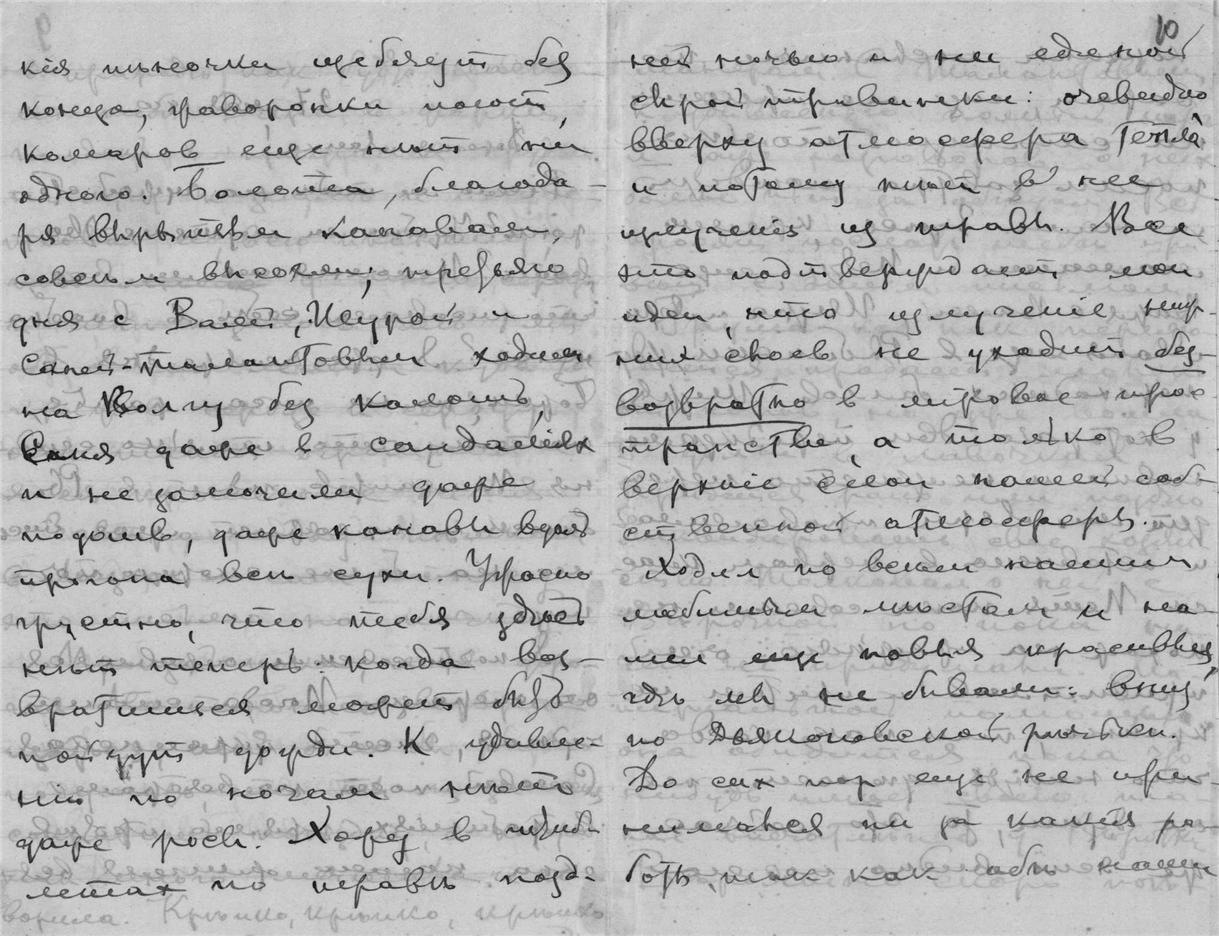 кія пташечки щебечут без
конца, жаворонки поют,
комаров еще нѣт ни
одного. Болота, благода-
ря вырытым канавам,
совсѣм высохли; третьяго
дня с Валей, Шурой и
Саней-Талантовым ходили
на Волгу без калош,
Саня даже в сандаліях
и не замочили даже
подошв, даже канавы вдоль
прогона всѣ сухи. Ужасно
грустно, что тебя здѣсь
нѣт теперь: когда воз-
вратишься может быть
пойдут дожди. К удивле-
нію по ночам нѣт
даже росы. Хожу в
по травѣ позд-
ней ночью и ни единой
сырой травинки: очевидно
вверху атмосфера тепла
и потому нѣт в нее
излученія из травы. Все
это подтверждает мои
идеи, что излученіе
не уходит без-
возвратно в міровое прос-
транство, а только в
верхніе слои нашей соб-
ственной атмосферы.
Ходил по всѣм нашим
любимым мѣстам и на-
шел еще новыя красивыя,
гдѣ мы не бывали: вниз
по Дьяконовской рѣчкѣ.
До сих пор еще не при-
нимался ни за какія ра-
боты, так как абы
10
9
ворила. Крѣпко, крѣпко, крѣпко